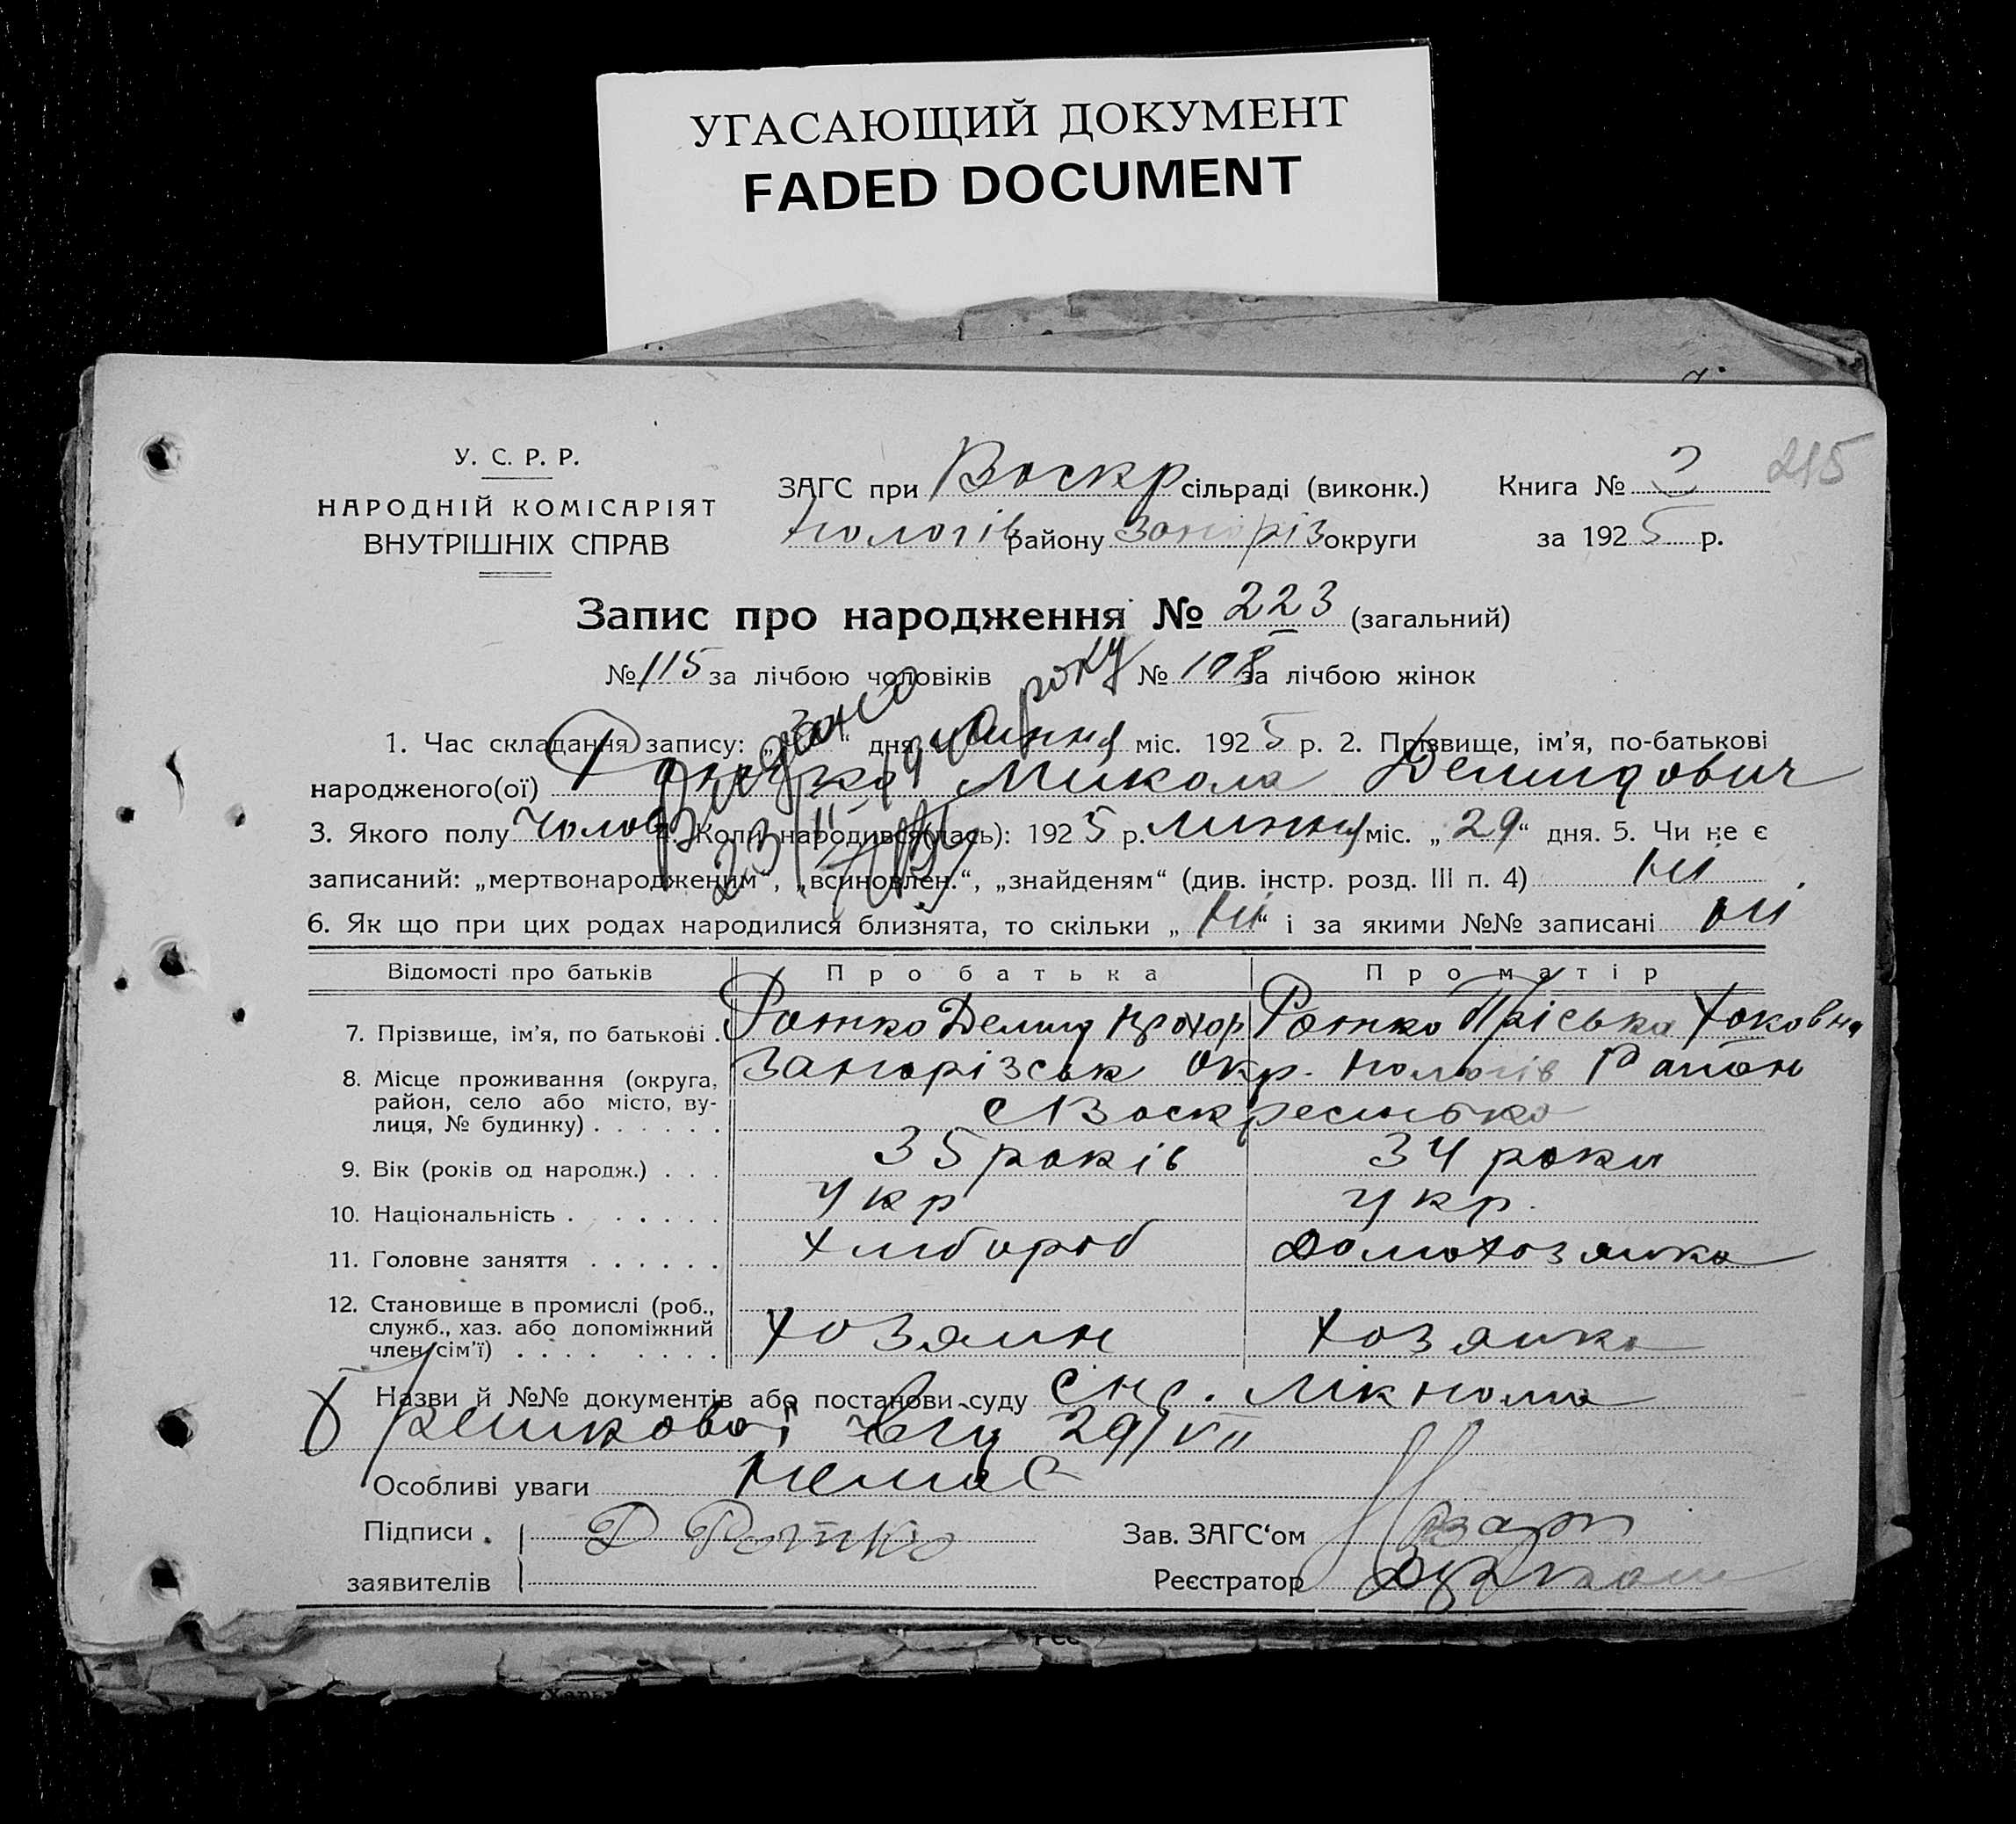 УГАСАЮЩИЙ ДОКУМЕНТ
FADED DOCUMENT
215
У. С. Р. Р.
НАРОДНІЙ КОМІСАРІЯТ
ВНУТРІШНІХ СПРАВ
ЗАГС при Воскр сільраді (виконк.)
Пологів району Запоріз округи
Книга № 2
за 1925 р.
Запис про народження № 223 (загальний)
№ 115 за лічбою чоловіків № 108 за лічбою жінок
1. Час складання запису: „ “ дня липня міс. 1925 р. 2. Прізвище, ім’я, по-батькові
народженого(ої) Микола Демидович
3. Якого полу чолов 4. Коли народився(лась): 1925 р. липня міс. „29“ дня. 5. Чи не є
записаний: „мертвонародженим“, „всиновлен.“, „знайденям“ (див. інстр. розд. III п. 4) ні
6. Як що при цих родах народилися близнята, то скільки „ні“ і за якими №№ записані ні
Видано
23/II року
Відомості про батьків Про батька Про матір
7. Прізвище, ім’я, по батькові . Ротко Демид Прохор Ротко Пріська
8. Місце проживання (округа, район, село або місто, вулиця, № будинку) . . . . . . Запорізськ Окр. Пологів Район
с Воскресенька
9. Вік (років од народж.) . . . 35 років 34 роки
10. Національність . . . . . . Укр Укр.
11. Головне заняття . . . . . . Хлібороб Домохозяйка
12. Становище в промислі (роб., служб., хаз. або допоміжний член сім’ї) . . . . . . . . Хозяин Хозяйка
Назви й №№ документів або постанови суду
29/VII
Особливі уваги Немає
Підписи . Д Ротко
заявителів
Зав. ЗАГС‘ом
Реєстратор